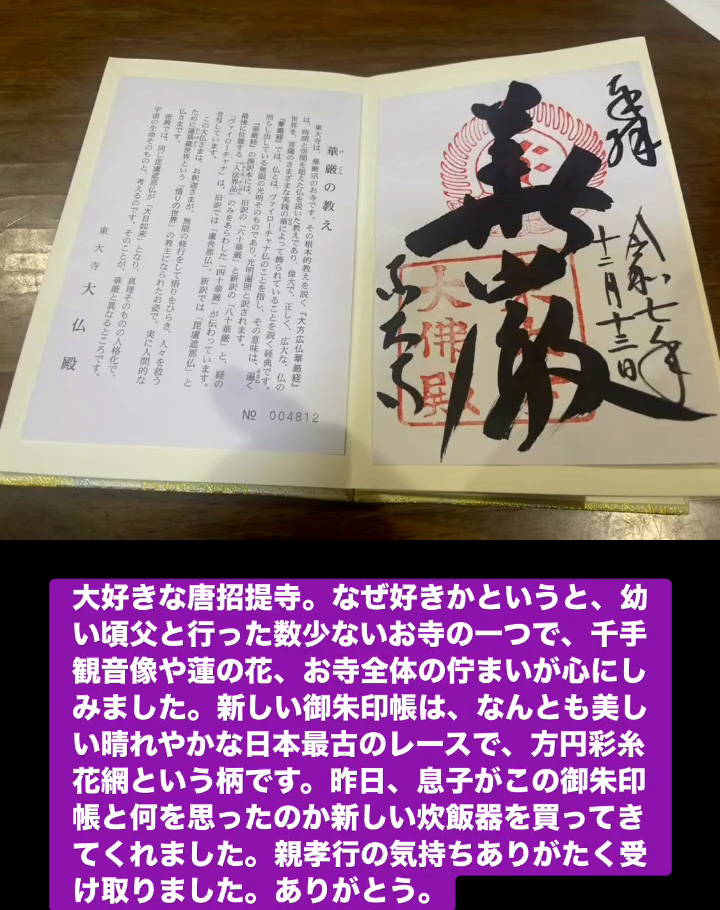 奉拝
令和七年
十二月十三日
華厳
東大寺
大佛殿
華厳の教え
東大寺は、華厳宗のお寺です。その根本的教えを説く『大方広仏華厳経』
は、時間と空間を超えた仏を説いた教えであり、偉大で、正しく、広大な、仏の
世界を、菩薩のさまざまな実践の華によって飾られていることを説く経典です。
『華厳経』では、仏とは、ヴァイローチャナ仏のことを指し、その意味は、遍く
照らし出している無限の光明そのものであり、光明遍照と訳されます。
『華厳経』の漢訳本には、旧訳の「六十華厳」と新訳の「八十華厳」と、経の
最後に位置する「入法界品」のみをあらわした「四十華厳」が伝わっています。
「ヴァイローチャナ」は、旧訳では「盧舎那仏」、新訳では「毘盧遮那仏」と
音写しています。
この大仏さまは、お釈迦さまが、無限の修行をして悟りをひらき、人々を救う
ために蓮華蔵世界という（悟りの世界）の教主になられたお姿で、実に人間的な
仏さまです。
密教では、同じ毘盧遮那仏が「大日如来」となり、真理そのものの人格化で、
宇宙の生命そのものと、考えるのです。そのことが、華厳と異なるところです。
東大寺 大仏殿
№ 004812
大好きな唐招提寺。なぜ好きかというと、幼
い頃父と行った数少ないお寺の一つで、千手
観音像や蓮の花、お寺全体の佇まいが心にし
みました。新しい御朱印帳は、なんとも美し
い晴れやかな日本最古のレースで、方円彩糸
花網という柄です。昨日、息子がこの御朱印
帳と何を思ったのか新しい炊飯器を買ってき
てくれました。親孝行の気持ちありがたく受
け取りました。ありがとう。